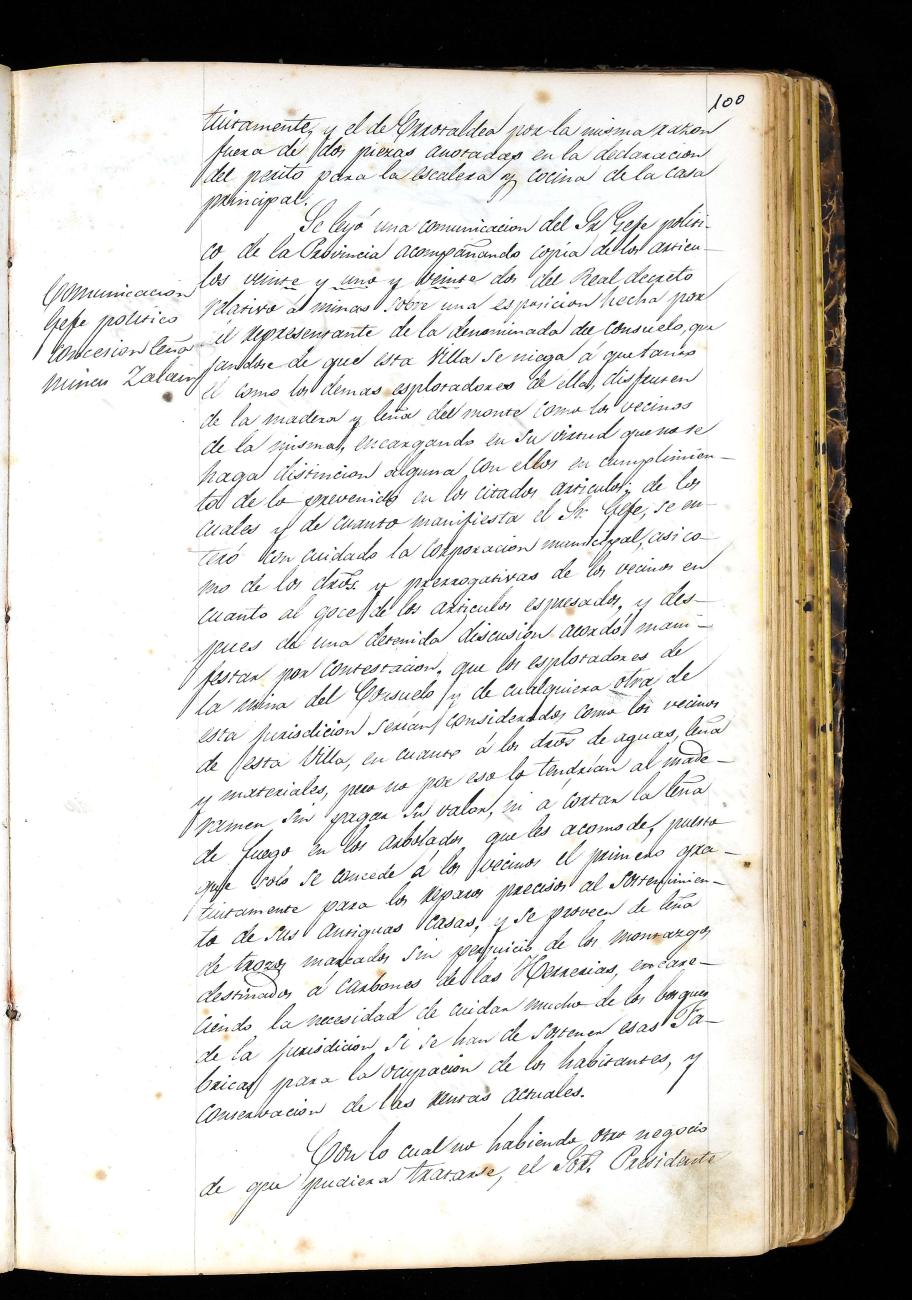 100
tuitamente, y el de Errotaldea por la misma razon
fuera de dos piezas anotadas en la declaracion
del perito para la escalera y cocina de la casa
principal.
Se leyó una comunicacion del Sr Gefe politi-
co de la Provincia acompañando copia de los articu-
los veinte y uno y veinte dos del Real decreto
relativo á minas sobre una esposicion hecha por
el representante de la denominada del Consuelo, que
jandose de que esta Villa se niega á que tanto
el como los demas esploradores de ella, disfruten
de la madera y leña del monte como los vecinos
de la misma, encargando en su virtud que no se
haga distincion alguna con ellos en cumplimien-
to de lo prevenido en los citados articulos; de los
cuales y de cuanto manifiesta el Sr. Gefe, se en-
teró con cuidado la corporacion municipal, asi co-
mo de los dros. y prerrogativas de los vecinos en
cuanto al goce de los articulos espresados, y des-
pues de una detenida discusion acordó mani-
festar por contestacion, que los esploradores de
la mina del Consuelo y de cualquiera otra de
esta jurisdicion serian considerados como los vecinos
de esta Villa, en cuanto á los dros de aguas, leña
y materiales, pero no por eso lo tendrian al made-
ramen sin pagar su valor, ni á cortar la leña
de fuego en los arbolados que les acomode, puesto
que solo se concede á los vecinos el primero gra-
tuitamente para los reparos precisos al sostenimien-
to de sus antiguas casas, y se proveen de leña
de trozos marcados sin perjuicio de los montazgos
destinados á carbones de las Herrerias, encare-
ciendo la necesidad de cuidar mucho de los bosques
de la jurisdicion si se han de sostener esas Fa-
bricas para la ocupacion de los habitantes, y
conservacion de las rentas actuales.
Con lo cual no habiendo otro negocio
de que pudiera tratarse, el Sor. Presidente
Comunicacion
Gefe politico
concesion leña
minas Zalain